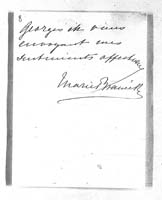 8
Georges et vous
envoyant mes
sentiments affectueux
Marie